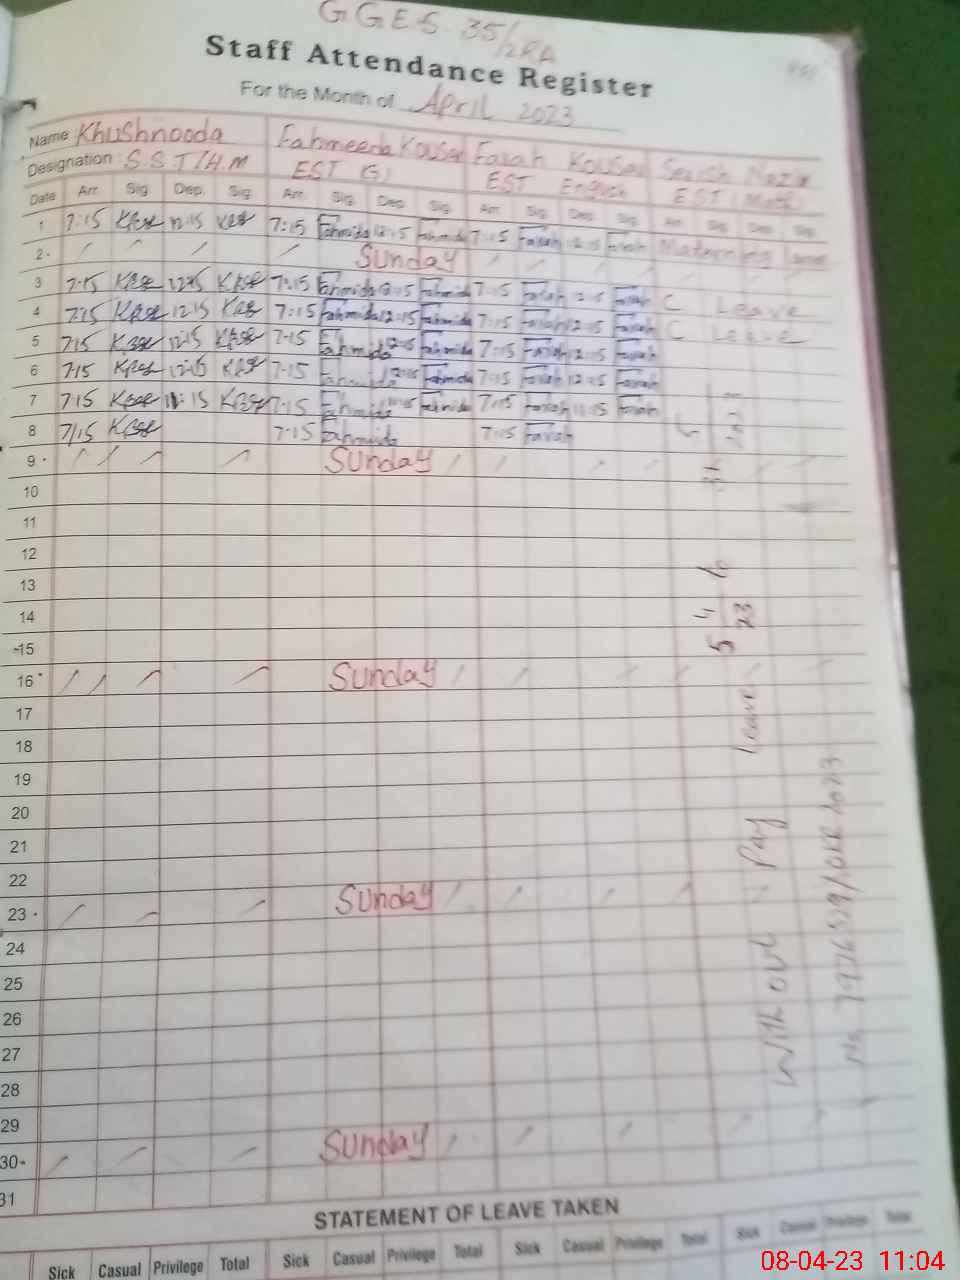 G G E S. 35/2RA
Staff Attendance Register
For the Month of April 2023
Name Khushnooda Fahmeeda Kousar Farah Kousar Sehrish Nazir
Designation: S.S.T/H.M EST (G) EST English EST Math
Date Arr. Sig Dep. Sig Arr. Sig. Dep. Sig. Arr. Sig. Dep. Sig. Arr. Sig. Dep. Sig.
1 7:15 12:15 7:15 Fahmida 12:15 Fahmida 7:15 Farah 12:15 Farah Maternity Leave
2 Sunday
3 7:15 12:15 7:15 Fahmida 12:15 Fahmida 7:15 Farah 12:15 Farah C Leave
4 7:15 12:15 7:15 Fahmida 12:15 Fahmida 7:15 Farah 12:15 Farah C Leave
5 7:15 12:15 7:15 Fahmida 12:15 Fahmida 7:15 Farah 12:15 Farah
6 7:15 12:15 7:15 Fahmida 12:15 Fahmida 7:15 Farah 12:15 Farah
7 7:15 11:15 7:15 Fahmida 11:15 Fahmida 7:15 Farah 11:15 Farah
8 7/15 7:15 Fahmida 7:15 Farah
9 Sunday
10
11
12
13
14
15
16 Sunday
17
18
19
20
21
22
23 Sunday
24
25
26
27
28
29
30 Sunday
31
With out Pay Leave
STATEMENT OF LEAVE TAKEN
Sick Casual Privilege Total Sick Casual Privilege Total Sick Casual Privilege Total Sick Casual Privilege Total
08-04-23 11:04